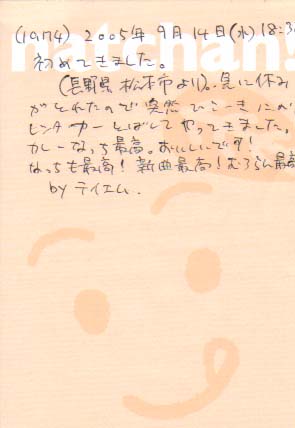 (1974) 2005年 9月 14日(水) 18:30
natchan!
初めてきました。
(長野県 松本市より)。急に休み
がとれたので突然ひこーきにのり
レンタカーとばしてやってきました。
カレーなっち最高。おいしいです!
なっちも最高! 新曲最高! むろらん最高
by ティエム.